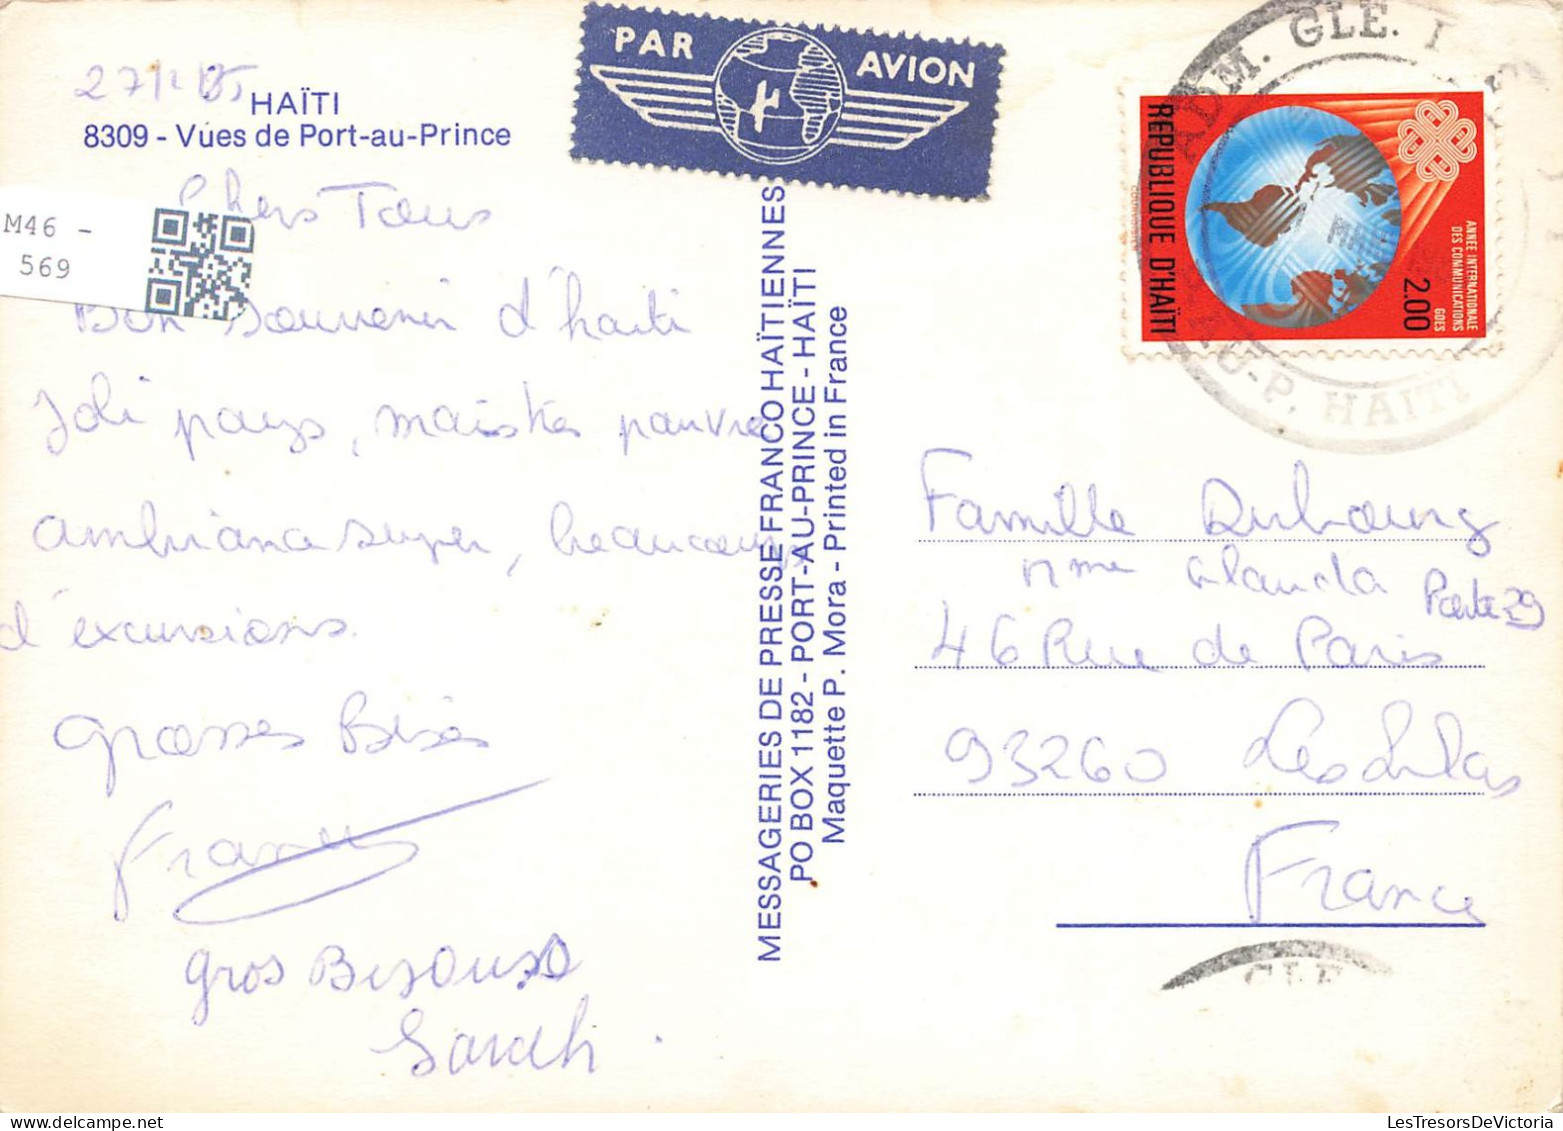 HAÏTI
8309 - Vues de Port-au-Prince
M46 -
569
Chers Tous
Bon souvenir d'haiti
Joli pays, mais très pauvre
ambiance super, beaucoup
d'excursions.
grosses Bises
gros Bisous
Sarah.
PAR AVION
MESSAGERIES DE PRESSE FRANCO HAÏTIENNES
PO BOX 1182 - PORT-AU-PRINCE - HAÏTI
Maquette P. Mora - Printed in France
ADM. GLE.
AU-P. HAITI
REPUBLIQUE D'HAÏTI
ANNÉE INTERNATIONALE
DES COMMUNICATIONS
GDES
2.00
Famille Dubourg
46 Rue de Paris
Porte 29
93260 Les Lilas
France
GLE
LesTresorsDeVictoria.com